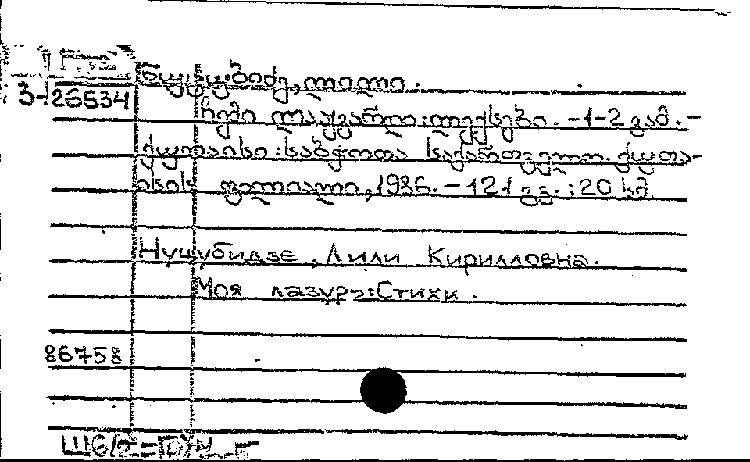 ნუცუბიძე, ლილი.
3-26534
ჩემი ლაჟვარდი: ლექსები. -1-2 გამ. -
ქუთაისი: საბჭოთა საქართველო. ქუთა-
ისის ფილიალი, 1986. - 121 გვ.; 20 სმ
Нуцубидзе, Лили Кирилловна.
Моя лазурь: Стихи.
86758